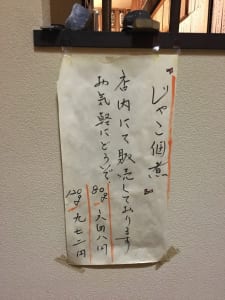 じゃこ佃煮
店内にて販売しております
お気軽にどうぞ
80g 六四八円
120g 九七二円